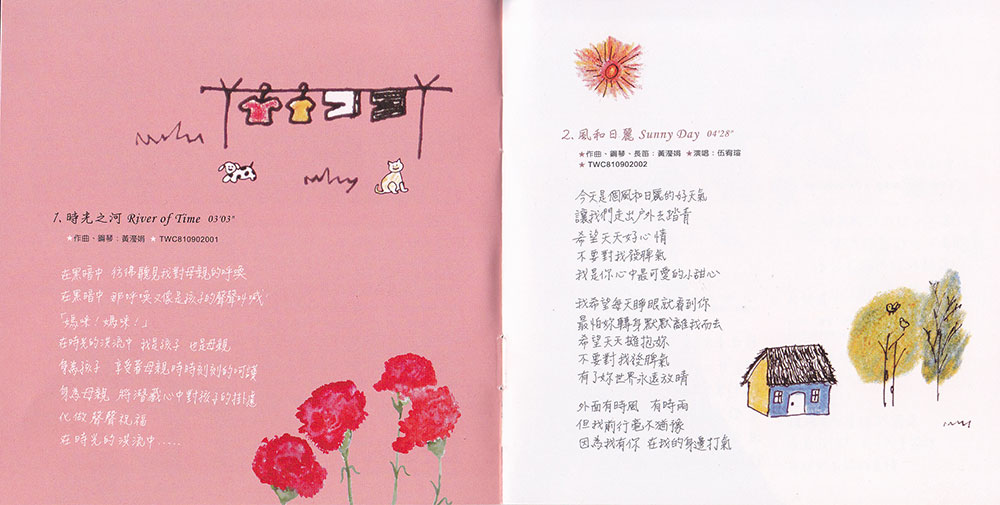 1、時光之河 River of Time 03'03"
★作曲、鋼琴：黃瀅娟 ★ TWC810902001
在黑暗中 彷彿聽見我對母親的呼喚
在黑暗中 那呼喚又像是孩子的聲聲呼喊
「媽咪！媽咪！」
在時光的漠流中 我是孩子 也是母親
身為孩子 享受著母親時時刻刻的呵護
身為母親 將潛藏心中對孩子的掛慮
化做聲聲祝福
在時光的漠流中.....
2、風和日麗 Sunny Day 04'28"
★作�、鋼琴、長笛：黃瀅娟 ★演唱：伍宥瑄
★ TWC810902002
今天是個風和日麗的好天氣
讓我們走出戶外去踏青
希望天天好心情
不要對我發脾氣
我是你心中最可愛的小甜心
我希望每天睜眼就看到你
最怕妳轉身默默離我而去
希望天天擁抱妳
不要對我發脾氣
有了妳世界永遠放晴
外面有時風 有時雨
但我前行毫不猶豫
因為我有你 在我的身邊打氣